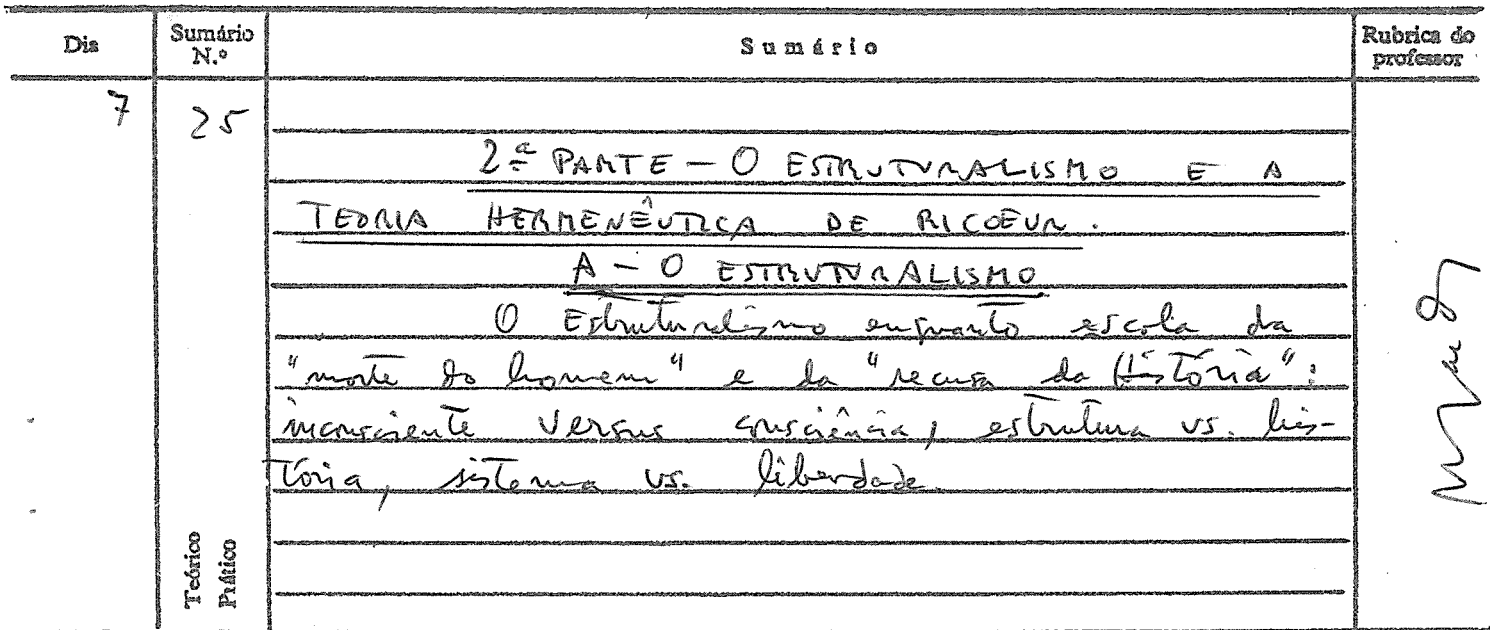 Dia
Sumário
N.º
Sumário
Rubrica do
professor
7
25
2ª PARTE — O ESTRUTURALISMO E A
TEORIA HERMENÊUTICA DE RICOEUR.
A — O ESTRUTURALISMO
O Estruturalismo enquanto escola da
"morte do homem" e da "recusa da História":
inconsciente versus consciência, estrutura vs. his-
tória, sistema vs. liberdade.
Teórico
Prático